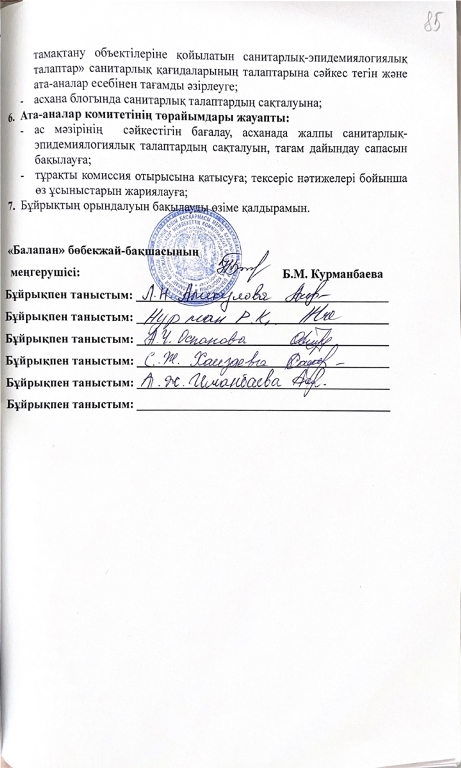 85
тамақтану объектілеріне қойылатын санитарлық-эпидемиологиялық
талаптар» санитарлық қағидаларының талаптарына сәйкес тегін және
ата-аналар есебінен тағамды әзірлеуге;
- асхана блогында санитарлық талаптардың сақталуына;
6. Ата-аналар комитетінің төрайымдары жауапты:
- ас мәзірінің сәйкестігін бағалау, асханада жалпы санитарлық-
эпидемиологиялық талаптардың сақталуын, тағам дайындау сапасын
бақылауға;
- тұрақты комиссия отырысына қатысуға; тексеріс нәтижелері бойынша
өз ұсыныстарын жариялауға;
7. Бұйрықтың орындалуын бақылауды өзіме қалдырамын.
«Балапан» бөбекжай-бақшасының
меңгерушісі: Б.М. Курманбаева
Бұйрықпен таныстым: Л.Н.
Бұйрықпен таныстым: Нурман Р.К.
Бұйрықпен таныстым: А.У. Оспанова
Бұйрықпен таныстым: С.Ж.
Бұйрықпен таныстым: А.Ж. Иманбаева
Бұйрықпен таныстым: